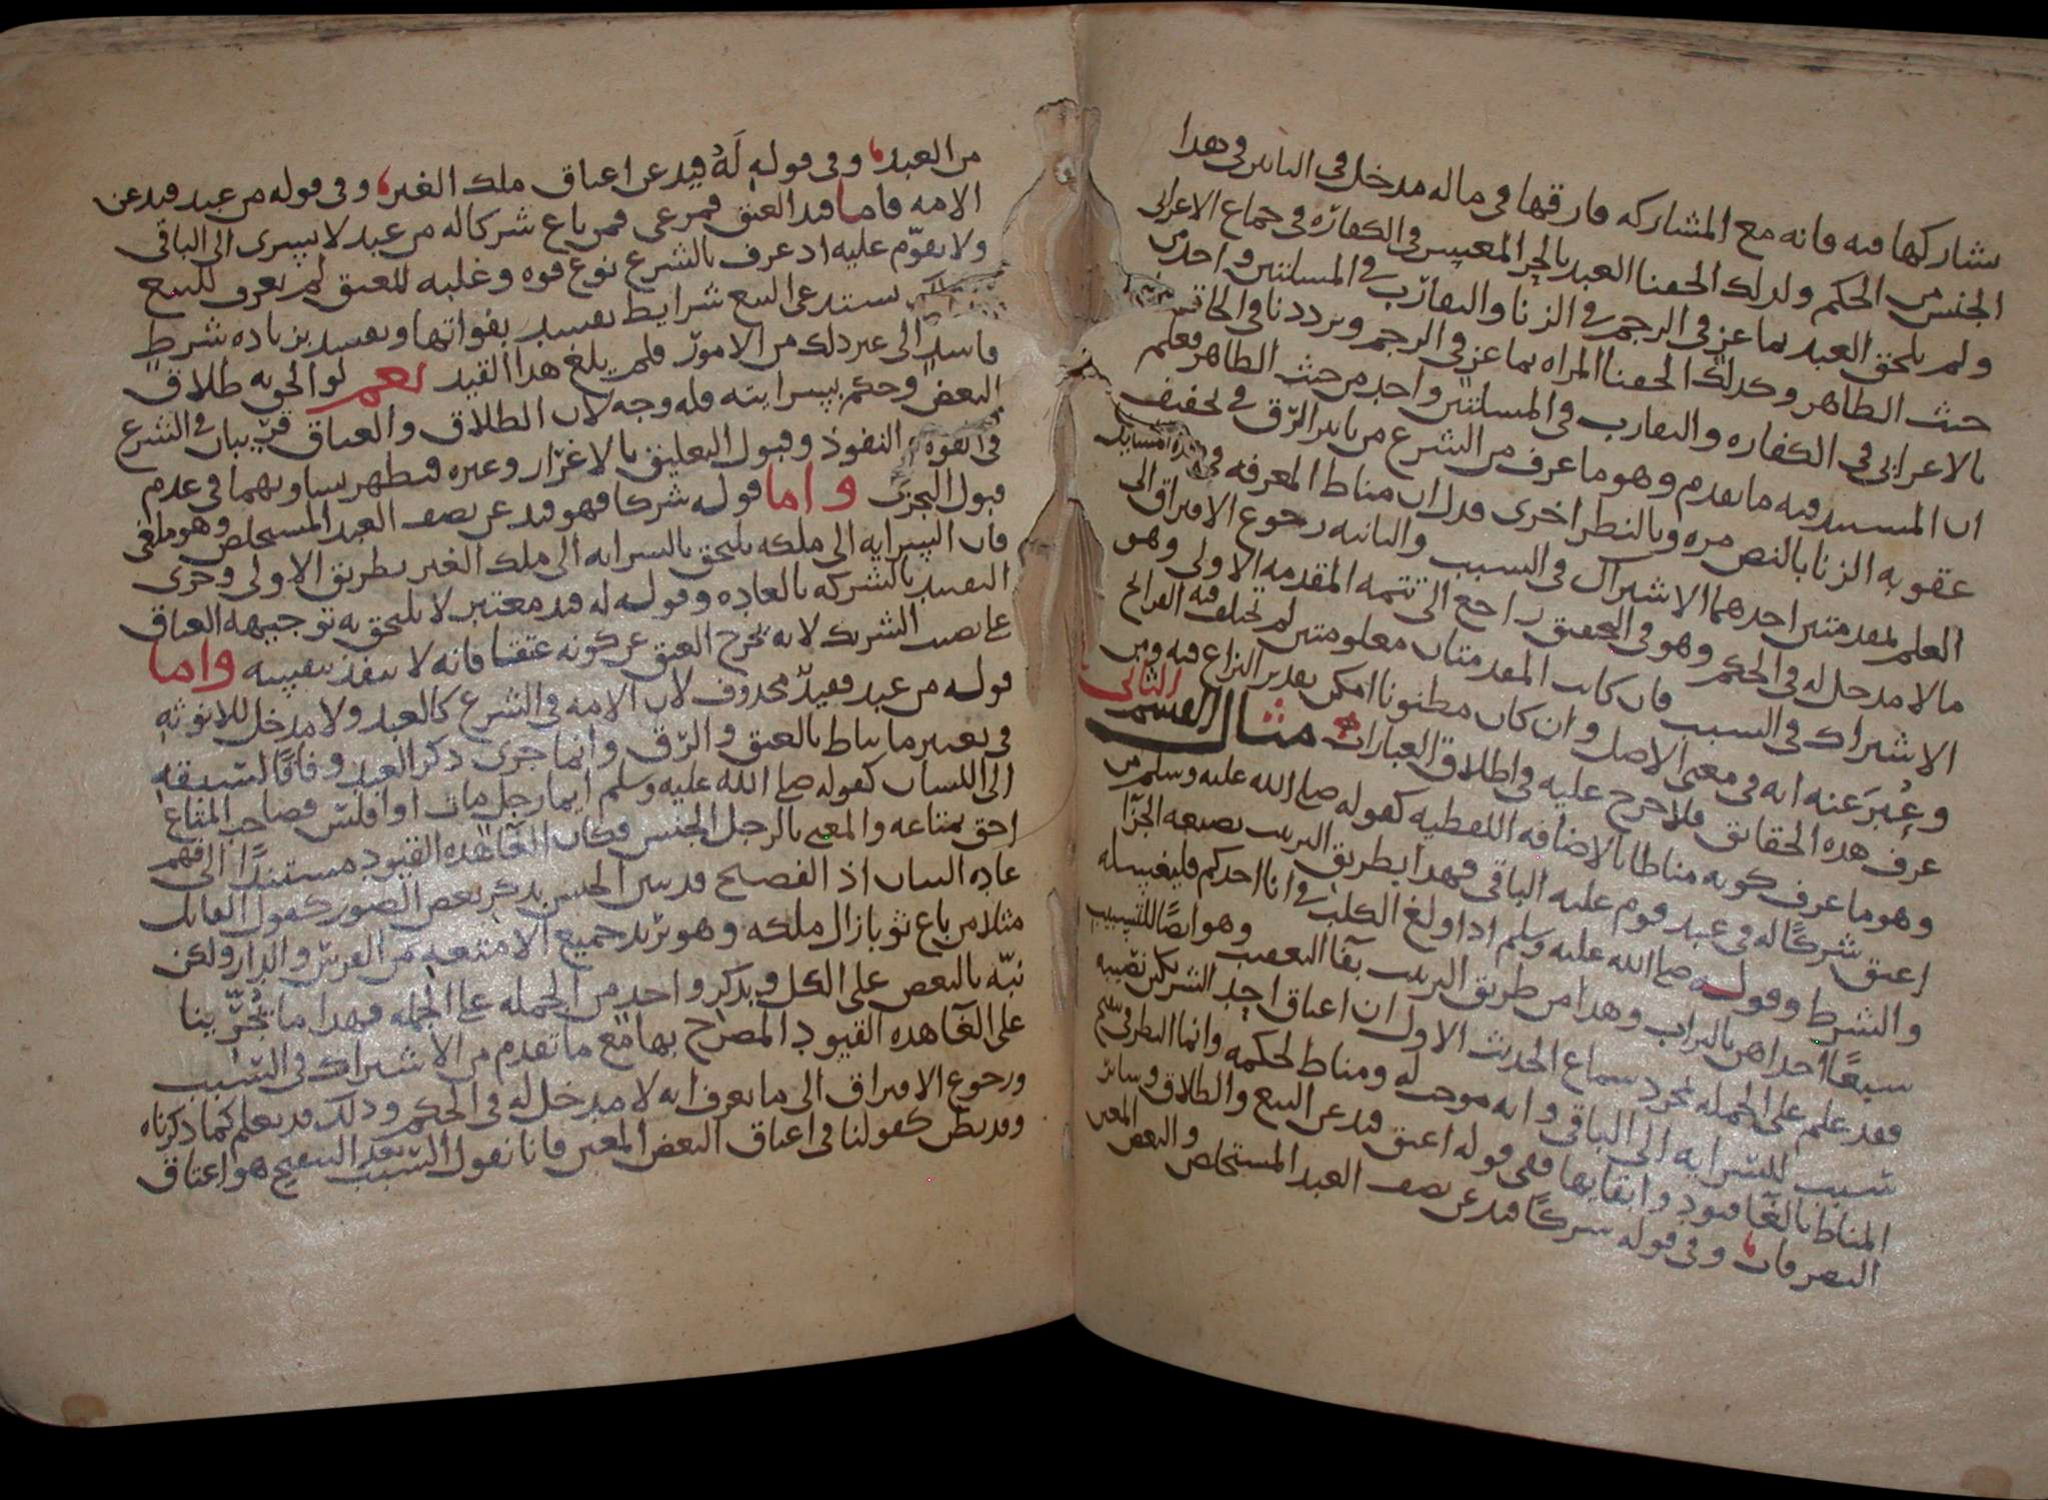 يشاركها فيه فانه مع المشاركه فارقها في ما له مدخل في التاثير في هدا
الجنس من الحكم ولدلك الحقنا العبد بالحر المعيس في الكفارة في جماع الاعرابي
ولم يلحق العبد بماعز في الرجم في الزنا والتقارب في المسئلتين واحد من
حيث الظاهر وكدلك الحقنا المراه بماعز في الرجم وترددنا في
بالاعرابي في الكفاره والتقارب في المسلتين واحد من حيث الظاهر فعلم
ان المستند فيه ما تقدم وهو ما عرف من الشرع من تاثير الرق في تخفيف
عقوبه الزنا بالنص مره وبالنظر اخرى فدل ان مناط المعرفه في هذه المسايل
العلم بمقدمتين احدهما الاشتراك في السبب والثانيه رجوع الافتراق الى
ما لا مدخل له في الحكم وهو في التحقيق راجع الى تتمه المقدمه الاولى وهو
الاشتراك في السبب فان كانت المقدمتان معلومتين لم تختلف فيه القرائح
وعُبرَ عنه انه في معنى الاصل وان كان مظنونا امكن تقدير النزاع فيه ومن
عرف هده الحقائق فلا حرج عليه في اطلاق العبارات مثال القسم الثاني
وهو ما عرف كونه مناطا بالاضافه اللفظيه كقوله صلى الله عليه وسلم من
اعتق شركًا له في عبد قوم عليه الباقي فهدا بطريق الترتيب بصيغه الجزا
والشرط وقوله صلى الله عليه وسلم ادا ولغ الكلب في انا احدكم فليغسله
سبعًا احداهن بالتراب وهدا من طريق الترتيب بفا التعقيب وهو ايضًا للتسبيب
فقد علم على الجمله بمجرد سماع الحديث الاول ان اعتاق احد الشريكين نصيبه
سبب للسرايه الى الباقي وانه موجب له ومناط لحكمه وانما النظر في تنقيح
المناط بالغا قيود وابقايها ففي قوله اعتق قيد عن البيع والطلاق وسائر
التصرفات وفي قوله شركًا قيد عن نصف العبد المستخلص والبعض المعين
من العبد وفي قوله لَهُ قيد عن اعتاق ملك الغير وفي قوله من عبد قيد عن
الامه فاما قيد العتق فمرعى فمن باع شركا له من عبد لا يسرى الى الباقي
ولا يقوّم عليه اد عرف بالشرع نوع قوه وغلبه للعتق لم يعرف للبيع
يستدعى البيع شرايط يفسد بفواتها ويفسد بزياده شرط
فاسد الى غير دلك من الامور فلم يلغ هدا القيد نعم لو الحق به طلاق
البعض وحكم بسرايته فله وجه لان الطلاق والعتاق قريبان في الشرع
في القوه النفوذ وقبول التعليق بالاغرار وغيره فيظهر تساويهما في عدم
قبول التجزى واما قوله شركا فهو قيد عن نصف العبد المستخلص وهو ملغى
فان السرايه الى ملكه يلتحق بالسرايه الى ملك الغير بطريق الاولى وجرى
التقييد بالشركه بالعاده وقوله له قيد معتبر لا يلتحق به توجيهه العتاق
على نصيب الشريك لانه يخرج العتق عن كونه عتقا فانه لا ينفذ بنفسه واما
قوله من عبد فقيد محدوف لان الامه في الشرع كالعبد ولا مدخل للانوثه
في تغيير ما يناط بالعتق والرق وانما جرى دكر العبد وفاقًا لسبقه
الى اللسان كقوله صلى الله عليه وسلم ايما رجل مات او افلس فصاحب المتاع
احق بمتاعه والمعنى بالرجل الجنس فكان الغا هده القيود مستندًا الى فهم
عاده اللسان اذ الفصيح قد يبين الجنس بدكر بعض الصور كقول القايل
مثلا من باع ثوبا زال ملكه وهو يريد جميع الامتعه من الفرش والدار ولكن
نبّه بالبعض على الكل وبدكر واحد من الجمله على الجمله فهدا ما يُجرّينا
على الغا هده القيود المصرح بها مع ما تقدم من الاشتراك في السبب
ورجوع الافتراق الى ما يعرف انه لا مدخل له في الحكم ودلك قد يعلم كما دكرناه
وقد يظن كقولنا في اعتاق البعض المعين فانا نقول السبب بعد التنقيح هو اعتاق